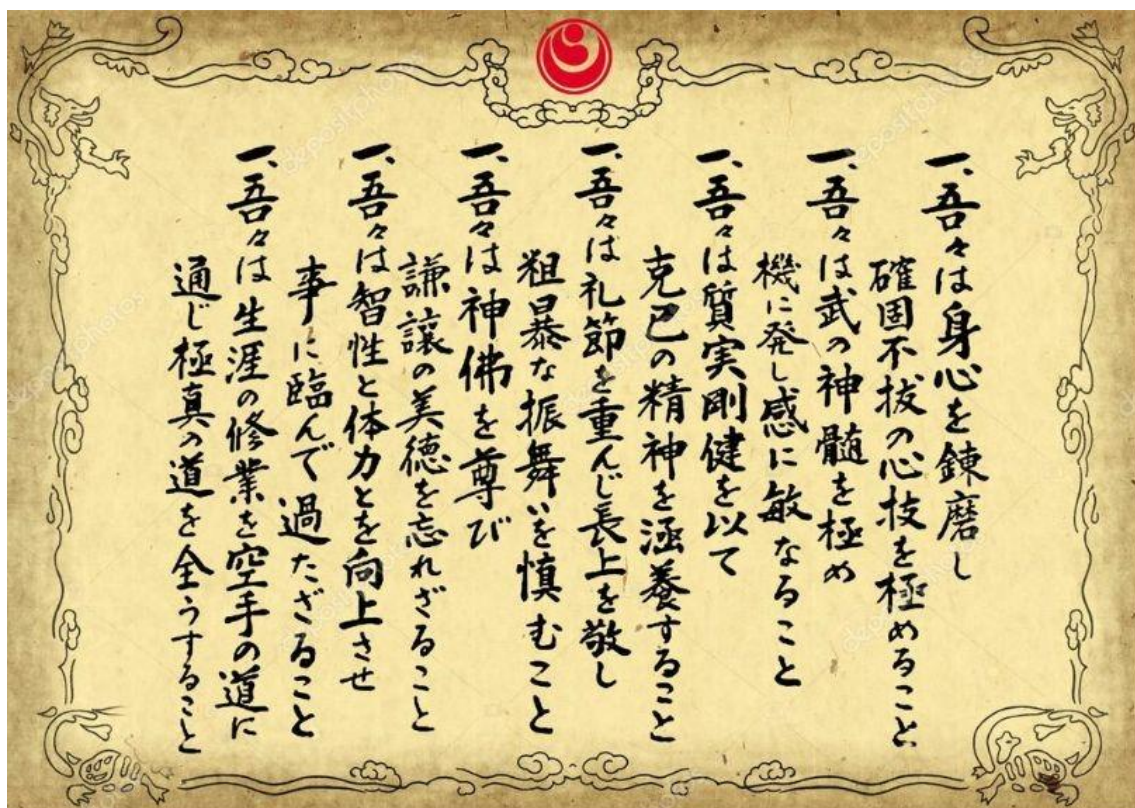 一、吾々は身心を錬磨し
確固不抜の心技を極めること
一、吾々は武の神髄を極め
機に発し感に敏なること
一、吾々は質実剛健を以て
克己の精神を涵養すること
一、吾々は礼節を重んじ長上を敬し
粗暴な振舞いを慎むこと
一、吾々は神佛を尊び
謙譲の美徳を忘れざること
一、吾々は智性と体力とを向上させ
事に臨んで過たざること
一、吾々は生涯の修業を空手の道に
通じ極真の道を全うすること
depositphotos